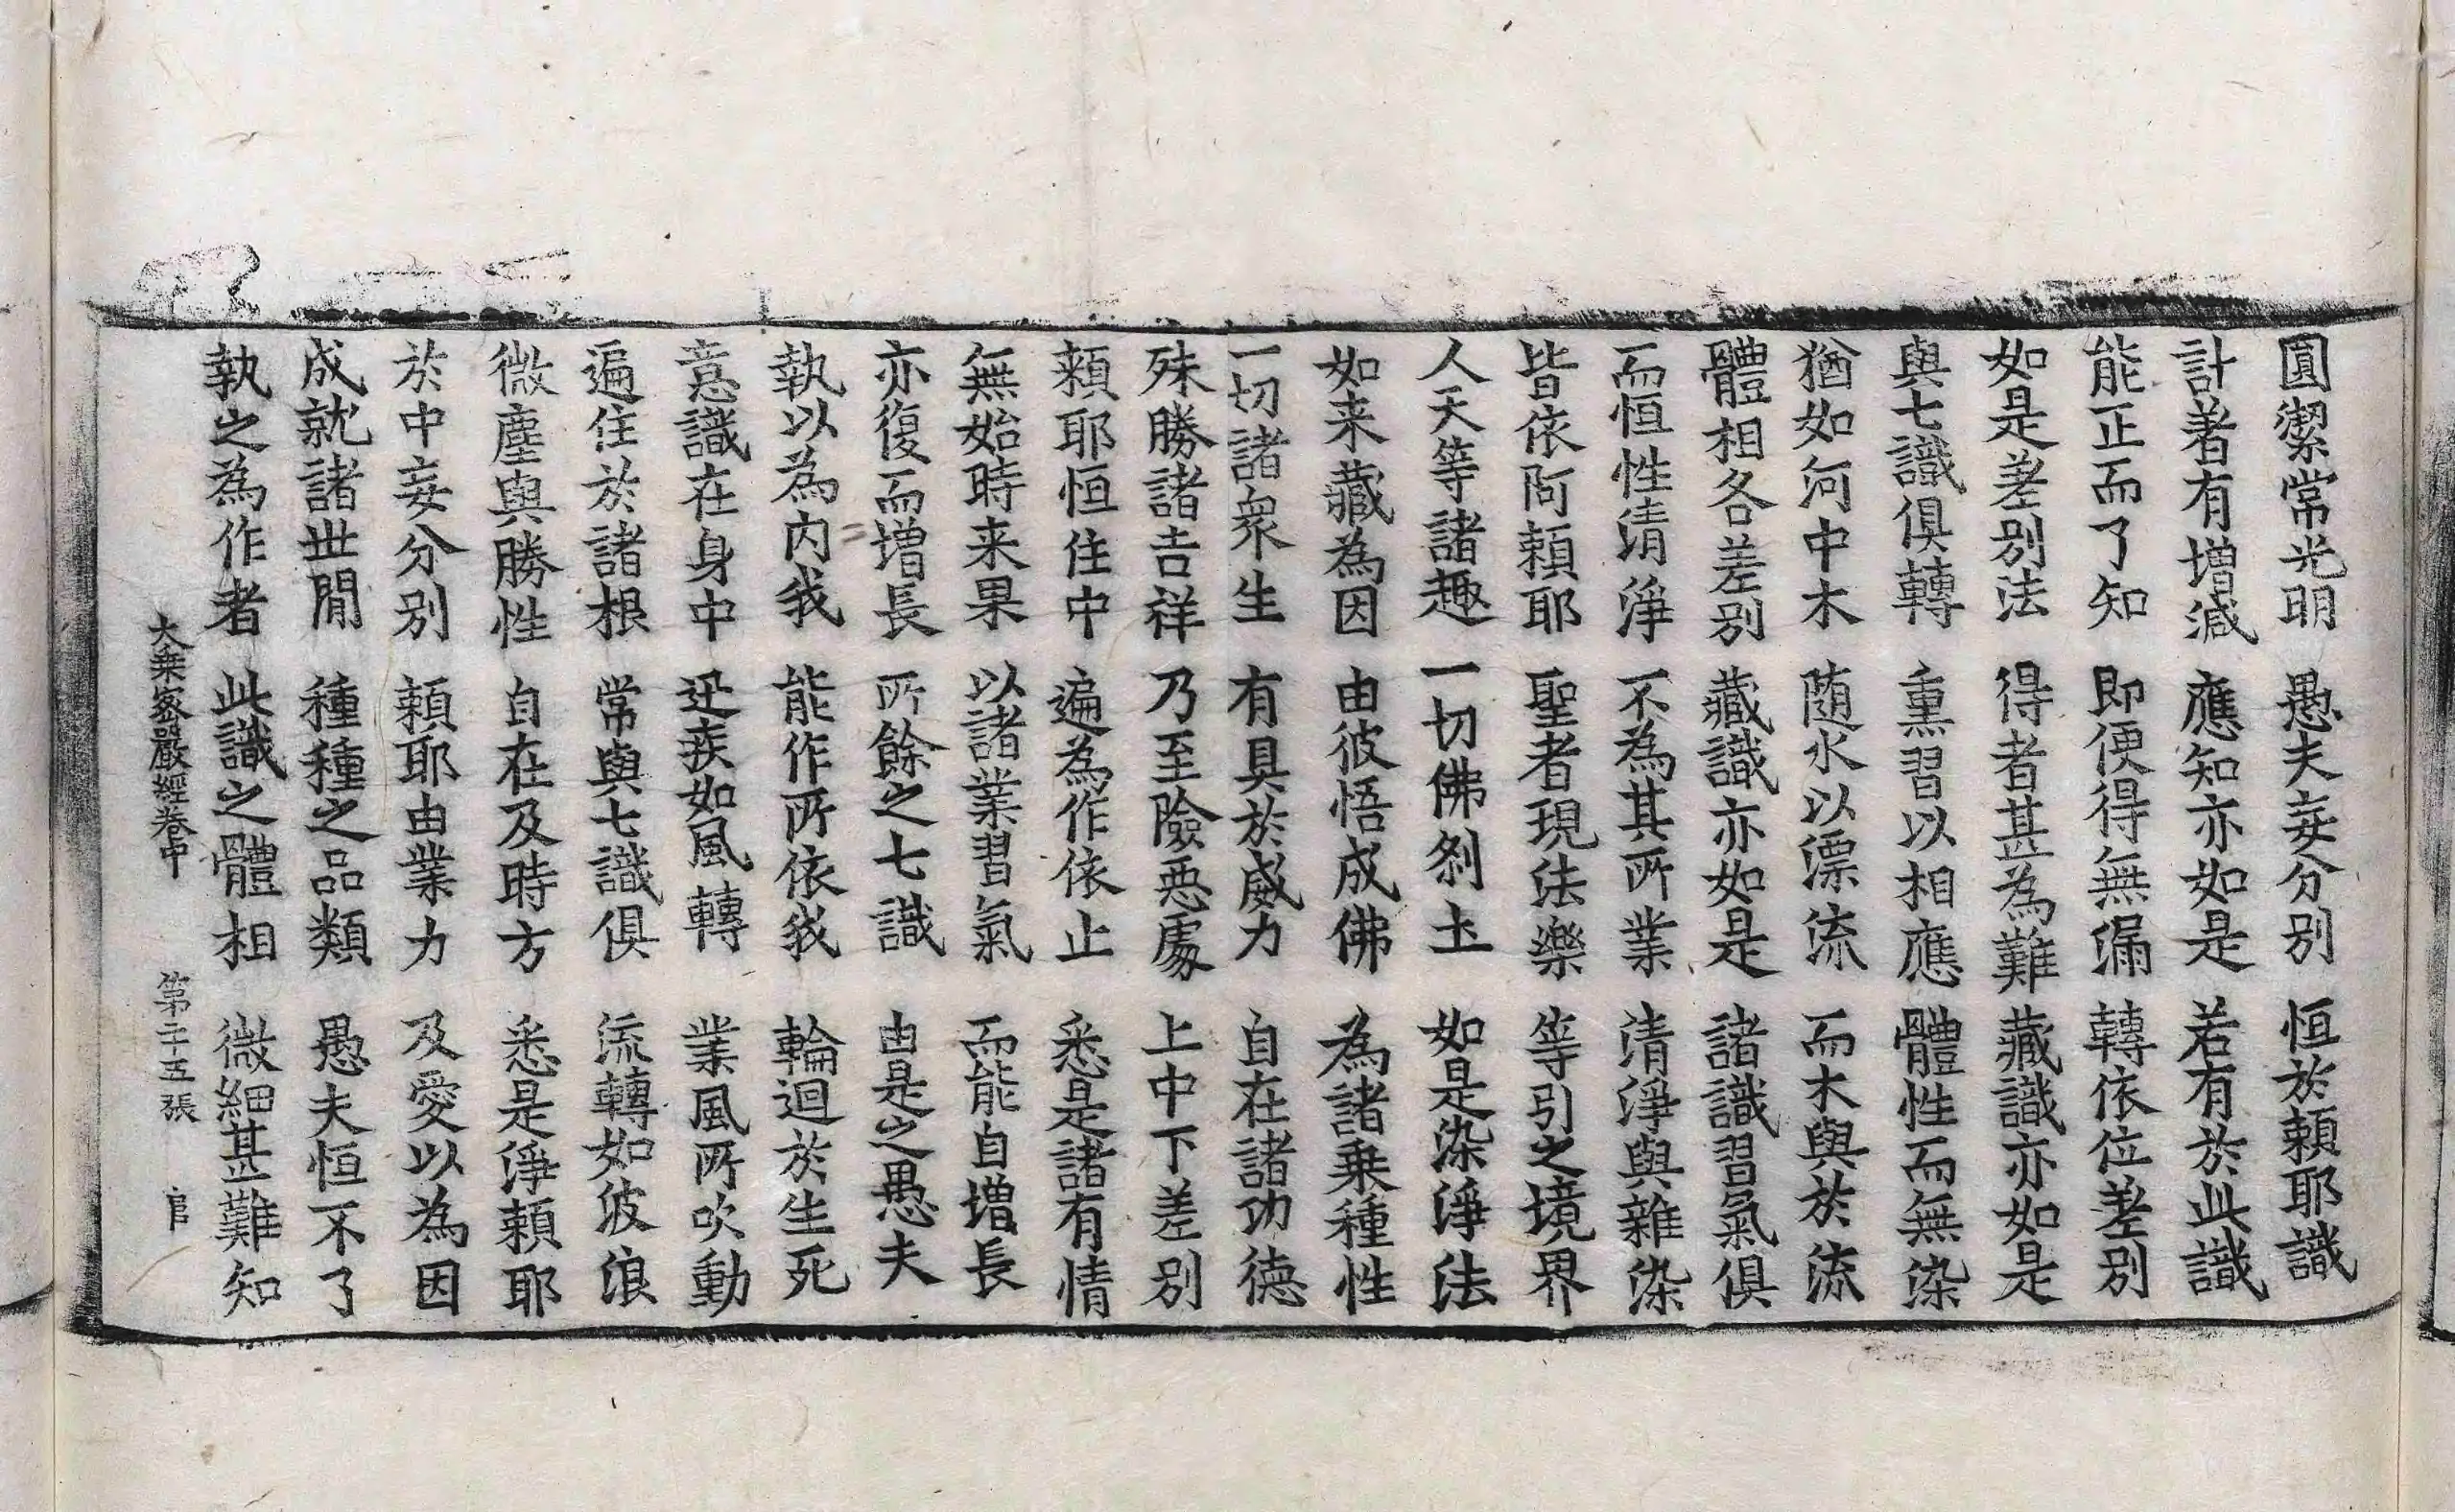 圓潔常光明 愚夫妄分別 恒於賴耶識
計著有增減 應知亦如是 若有於此識
能正而了知 即便得無漏 轉依位差別
如是差別法 得者甚為難 藏識亦如是
與七識俱轉 熏習以相應 體性而無染
猶如河中木 随水以漂流 而木與於流
體相各差別 藏識亦如是 諸識習氣俱
而恒性清淨 不為其所業 清淨與雜染
皆依阿賴耶 聖者現法樂 等引之境界
人天等諸趣 一切佛刹土 如是染淨法
如来藏為因 由彼悟成佛 為諸乗種性
一切諸衆生 有具於威力 自在諸功德
殊勝諸吉祥 乃至險惡處 上中下差別
賴耶恒住中 遍為作依止 悉是諸有情
無始時来果 以諸業習氣 而能自增長
亦復而增長 所餘之七識 由是之愚夫
執以為内我 能作所依我 輪迴於生死
意識在身中 迅疾如風轉 業風所吹動
遍住於諸根 常與七識俱 流轉如波浪
微塵與勝性 自在及時方 悉是淨賴耶
於中妄分別 賴耶由業力 及愛以為因
成就諸世間 種種之品類 愚夫恒不了
執之為作者 此識之體相 微細甚難知
大乗密嚴經卷中 第二十五張 官